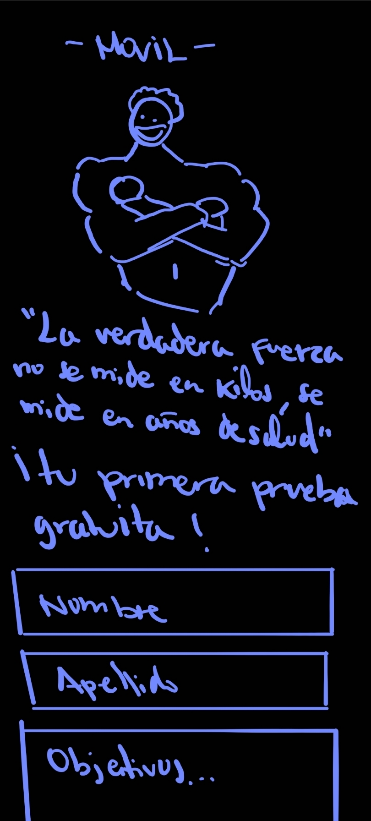 - Movil -
"La verdadera fuerza
no se mide en kilos, se
mide en años de salud"
¡tu primera prueba
gratuita!
Nombre
Apellido
Objetivus...